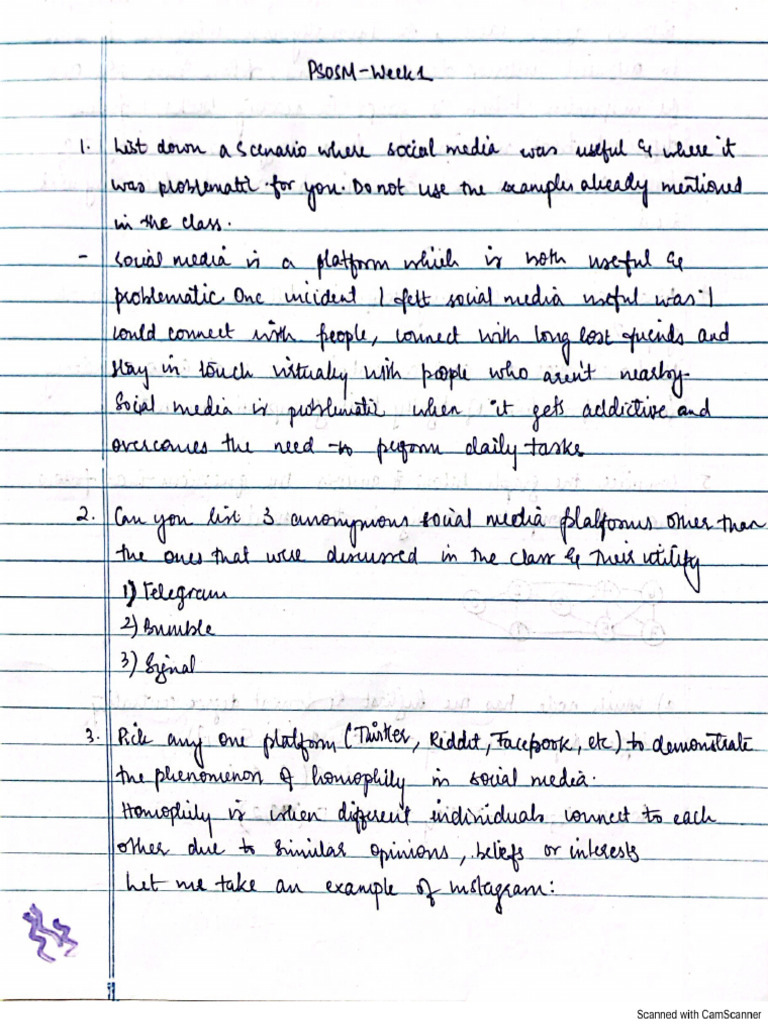 PSOSM-Week1
1. List down a scenario where social media was useful & where it
was problematic for you. Do not use the examples already mentioned
in the class.
- Social media is a platform which is both useful &
problematic. One incident I felt social media useful was I
could connect with people, connect with long lost friends and
stay in touch virtually with people who aren't nearby.
Social media is problematic when it gets addictive and
overcomes the need to perform daily tasks
2. Can you list 3 anonymous social media platforms other than
the ones that were discussed in the class & their utility
1) Telegram
2) Bumble
3) Signal
3. Pick any one platform (Twitter, Reddit, Facebook, etc) to demonstrate
the phenomenon of homophilly in social media.
Homophily is when different individuals connect to each
other due to similar opinions, beliefs or interests
Let me take an example of instagram:
Scanned with CamScanner